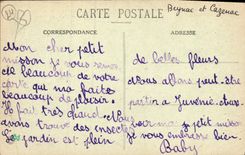 Beynac et Cazenac
CARTE POSTALE
CORRESPONDANCE
ADRESSE
Mon cher petit
misson je vous remercie
de beaucoup de votre
carte qui m'a faite
beaucoup de plaisir.
Il fait très chaud. Nous
avons trouvé des insectes
Le jardin est plein
de belles fleurs
Nous allons peut-être
partir à
pour ma petit misson
je vous embrasse bien
Baby